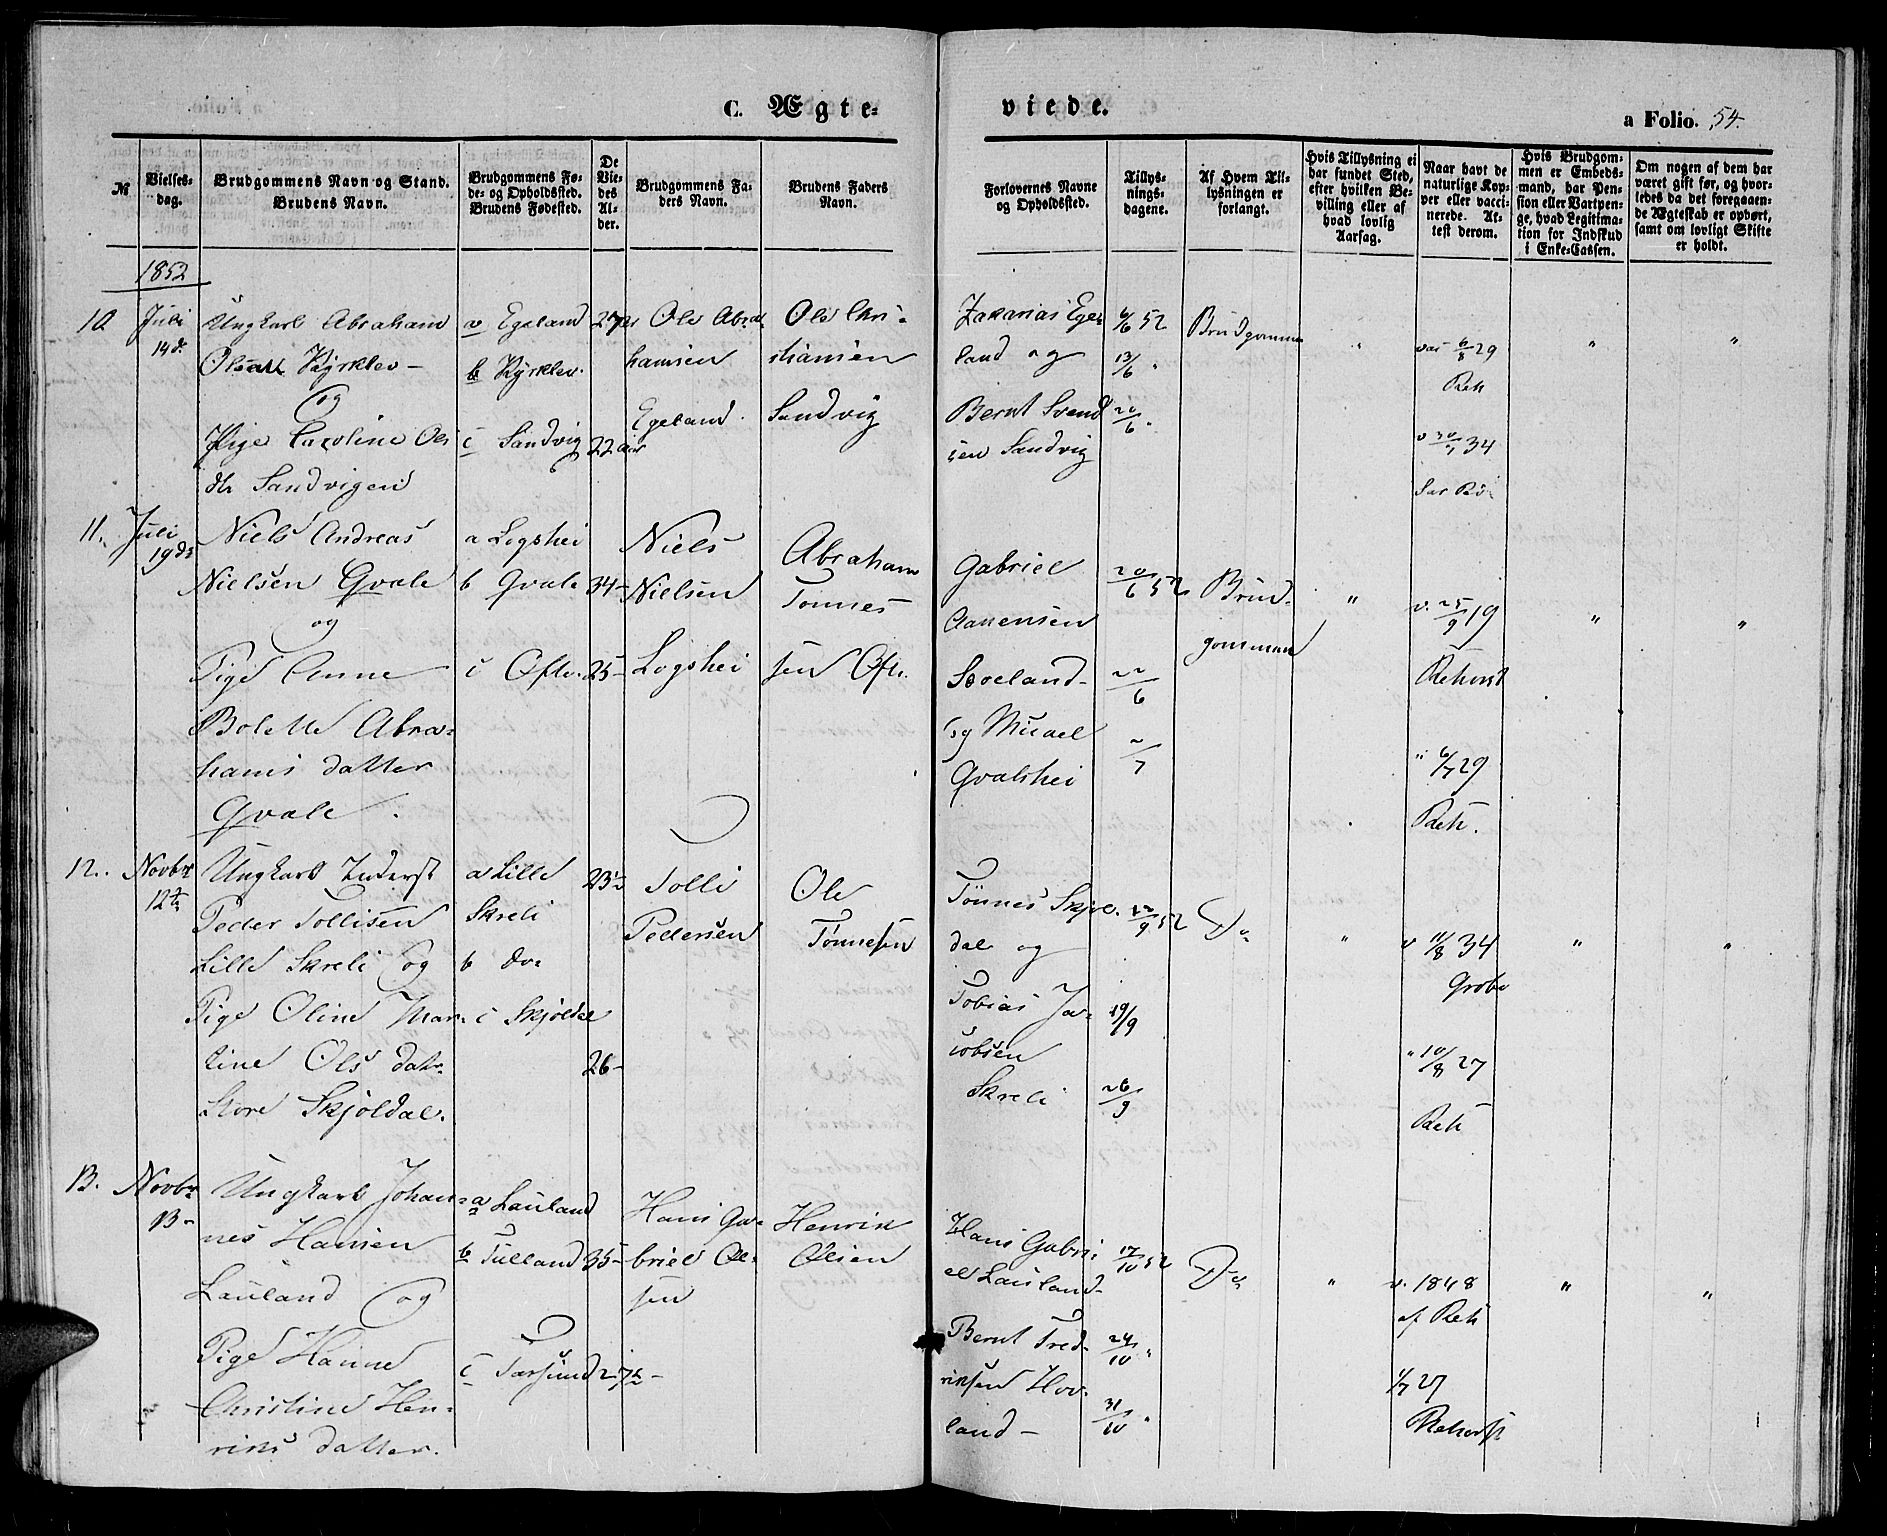 C. Ægte=
viede.
a Folio. 54.
№
Vielses-
dag.
Brudgommens Navn og Stand.
Brudens Navn.
Brudgommens Fø-
de- og Opholdssted.
Brudens Fødested.
De
Vie-
des
Al-
der.
Brudgommens Fa-
ders Navn.
Brudens Faders
Navn.
Forlovernes Navne
og Opholdssted.
Tillys-
nings-
dagene.
Af Hvem Til-
lysningen er
forlangt.
Hvis Tillysning ei
har fundet Sted,
efter hvilken Be-
villing eller af
hvad lovlig
Aarsag.
Naar havt de
naturlige Kop-
per eller vacci-
nerede. At-
test derom.
Hvis Brudgom-
men er Embeds-
mand, har Pen-
sion eller Vartpen-
ge, hvad Legitima-
tion for Indskud
i Enke-Cassen.
Om nogen af dem har
været gift før, og hvor-
ledes da det foregaaen-
de Ægteskab er ophørt,
samt om lovligt Skifte
er holdt.
1852
10 Juli 14d.
Ungkarl Abraham
Olsen Kyrklev -
og
Pige Caroline Ols
dtr Sandvigen
a Egeland
b Kyrklev.
c Sandvig
27
22 aar
Ole Abra-
hamsen
Egeland.
Ole Chri-
stiansen
Sandvig
Zakarias Ege-
land og
Bernt Svend
sen Sandvig
6/6 52
13/6 "
20/6 "
Brudgommen
"
vac 6/8 29
Reh
v 30/7 34
"
"
11. Juli 19de
Niels Andreas
Nielsen Qvale
og
Pige Anne
Bolette Abra-
hams datter
Qvale.
a Logshei
b Qvale
c Ofte.
34-
25-
Niels
Nielsen
Logshei
Abraham
Tønnes
sen Ofte.
Gabriel
Aanensen
Sveland-
og Micael
Qvalshei
20/6 52
Brud-
gommen
"
v. 25/9 19
Rehorst
" 6/7 29
Reh.
"
"
12. Novbr 12te
Ungkarl Inderst
Peder Tollisen
Lille Skreli og
Pige Oline Mar-
tine Ols datr
Store Skjoldal.
a Lille
Skreli
b do
c Skjoldal
23½
26-
Tolli
Pedersen
Ole
Tønnesen
Tønnes Skjol-
dal og
Tobias Ja-
cobsen
Skreli
12/9 52
19/9
26/9
Do
"
v 11/8 34
Grobe
" 10/8 27
Reh
"
"
13. Novbr 13-
Ungkarl Johan-
nes Hansen
Lauland og
Pige Hanne
Christine Hen-
riks datter.
a Lauland
b Tulland
c Farsund
35-
27½-
Hans Ga-
briel Ol-
sen
Henrik
Olsen
Hans Gabri-
el Lauland-
Bernt Fred-
riksen Hov-
land-
17/10 52
24/10 "
31/10 "
Do
"
v. 1848
af Reh
1/7 27
Rehorst
"
"